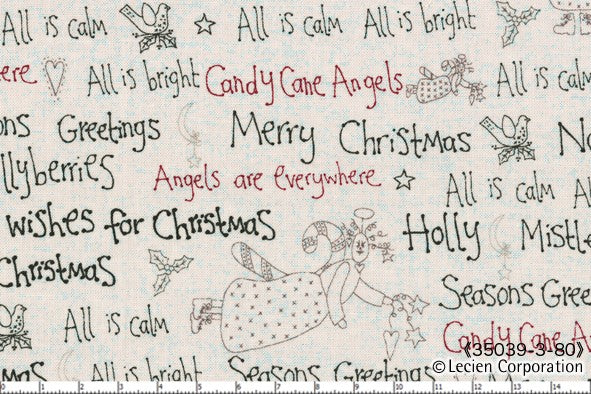 All is calm All is all All is bright
ere All is bright Candy Cane Angels All is calm
ons Greetings Merry Christmas No
llyberries Angels are everywhere All is calm Al
wishes for Christmas Holly Mistle
Christmas Seasons Gree
All is calm Candy Cane A
《35039-3-80》
mas All is bright Seasons Greetings ©Lecien Corporation
0 1 2 3 4 5 6 7 8 9 10 11 12 13 14